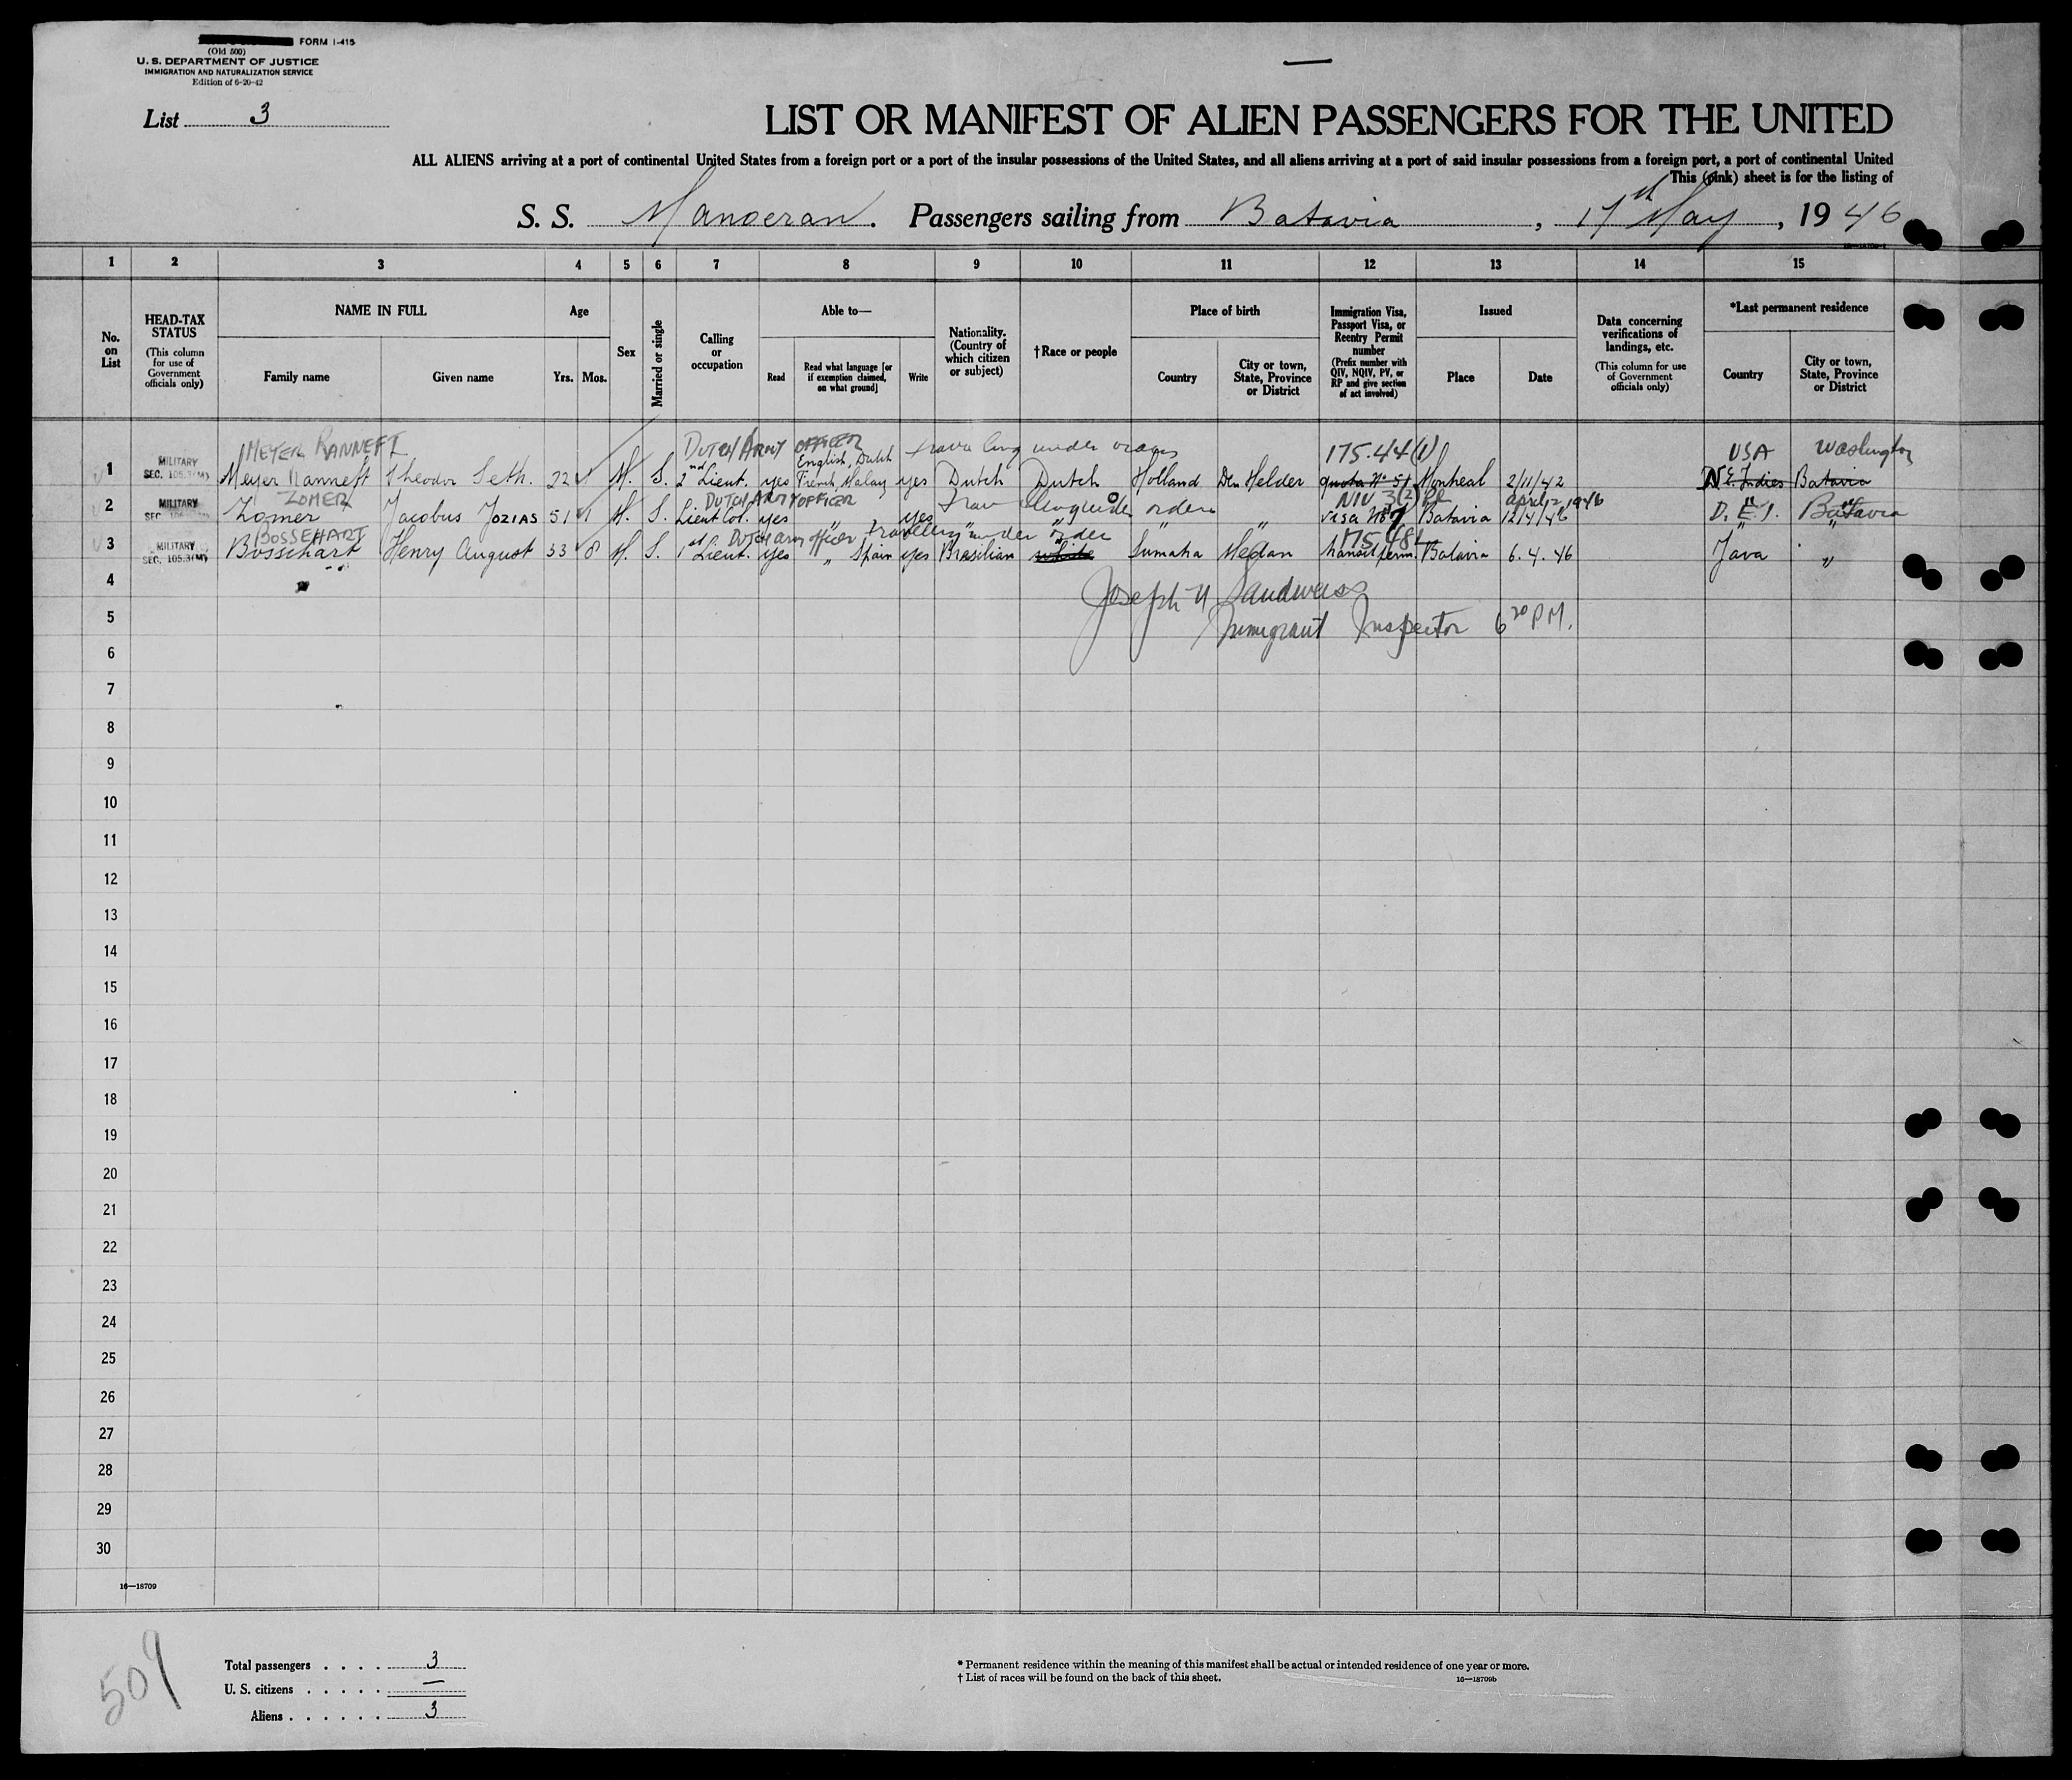 FORM I-415
(Old 500)
U. S. DEPARTMENT OF JUSTICE
IMMIGRATION AND NATURALIZATION SERVICE
Edition of 6-20-42
List 3
LIST OR MANIFEST OF ALIEN PASSENGERS FOR THE UNITED
ALL ALIENS arriving at a port of continental United States from a foreign port or a port of the insular possessions of the United States, and all aliens arriving at a port of said insular possessions from a foreign port, a port of continental United
This (pink) sheet is for the listing of
S. S. Manoeran. Passengers sailing from Batavia, 17th May, 1946
1 2 3 4 5 6 7 8 9 10 11 12 13 14 15
No. on List
HEAD-TAX STATUS
(This column for use of Government officials only)
NAME IN FULL
Family name
Given name
Age
Yrs. Mos.
Sex
Married or single
Calling or occupation
Able to—
Read
Read what language [or if exemption claimed, on what ground]
Write
Nationality. (Country of which citizen or subject)
†Race or people
Place of birth
Country
City or town, State, Province or District
Immigration Visa, Passport Visa, or Reentry Permit number
(Prefix number with QIV, NQIV, PV, or RP and give section of act involved)
Issued
Place
Date
Data concerning verifications of landings, etc.
(This column for use of Government officials only)
*Last permanent residence
Country
City or town, State, Province or District
MEYER RANNEFT DUTCH ARMY OFFICER travelling under orders 175.44(1) USA Washington
1 MILITARY SEC. 105.3(M) Meyer Ranneft Theodor Seth. 22 M. S. 2nd Lieut. yes English, Dutch French, Malay yes Dutch Dutch Holland Den Helder quota No 51 Montreal 2/11/42 N E Indies Batavia
ZOMER DUTCH ARMY OFFICER under orders NIV 3(2) April 12 1946
2 MILITARY Zomer Jacobus JOZIAS 51 1 M. S. Lieut Col. yes " yes " " " " Visa No 7 Batavia 12/4/46 D. E. I. Batavia
BOSSEHART Dutch army officer travelling under orders 175.48
3 MILITARY SEC. 105.3(M) Bosschart Henry August 33 8 M. S. 1st Lieut. yes " Spain yes Brasilian white Sumatra Medan transit perm. Batavia 6.4.46 Java "
4
Joseph H Sandweiss
5
Immigrant Inspector 6 20 P.M.
6
7
8
9
10
11
12
13
14
15
16
17
18
19
20
21
22
23
24
25
26
27
28
29
30
16—18709
509
Total passengers . . . . 3
U. S. citizens . . . . . —
Aliens . . . . . . 3
* Permanent residence within the meaning of this manifest shall be actual or intended residence of one year or more.
† List of races will be found on the back of this sheet.
16—18709b